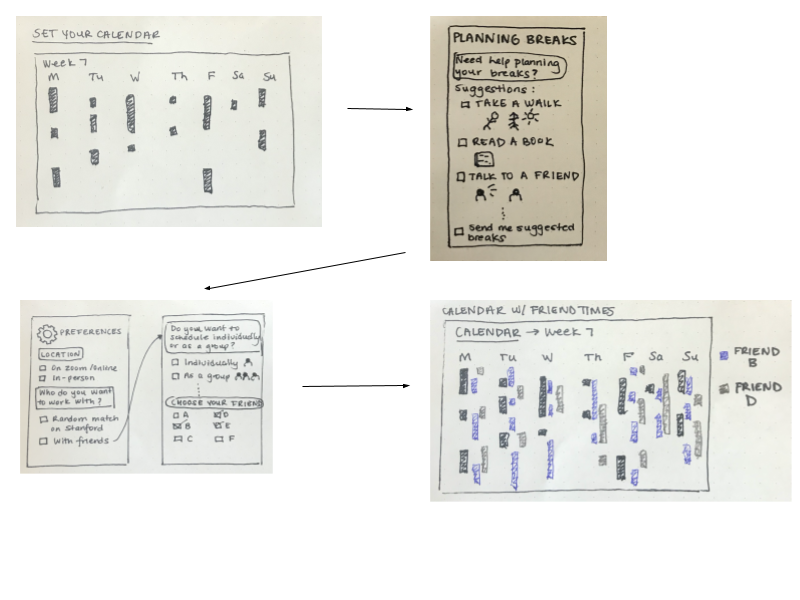 SET YOUR CALENDAR
Week 7
M Tu W Th F Sa Su
PLANNING BREAKS
Need help planning
your breaks?
Suggestions:
TAKE A WALK
READ A BOOK
TALK TO A FRIEND
Send me suggested
breaks
PREFERENCES
LOCATION
On zoom/online
In-person
Who do you want
to work with?
Random match
on Stanford
With friends
Do you want to
schedule individually
or as a group?
Individually
As a group
CHOOSE YOUR FRIEND
A D
B E
C F
CALENDAR W/ FRIEND TIMES
CALENDAR → Week 7
M Tu W Th F Sa Su
FRIEND
B
FRIEND
D